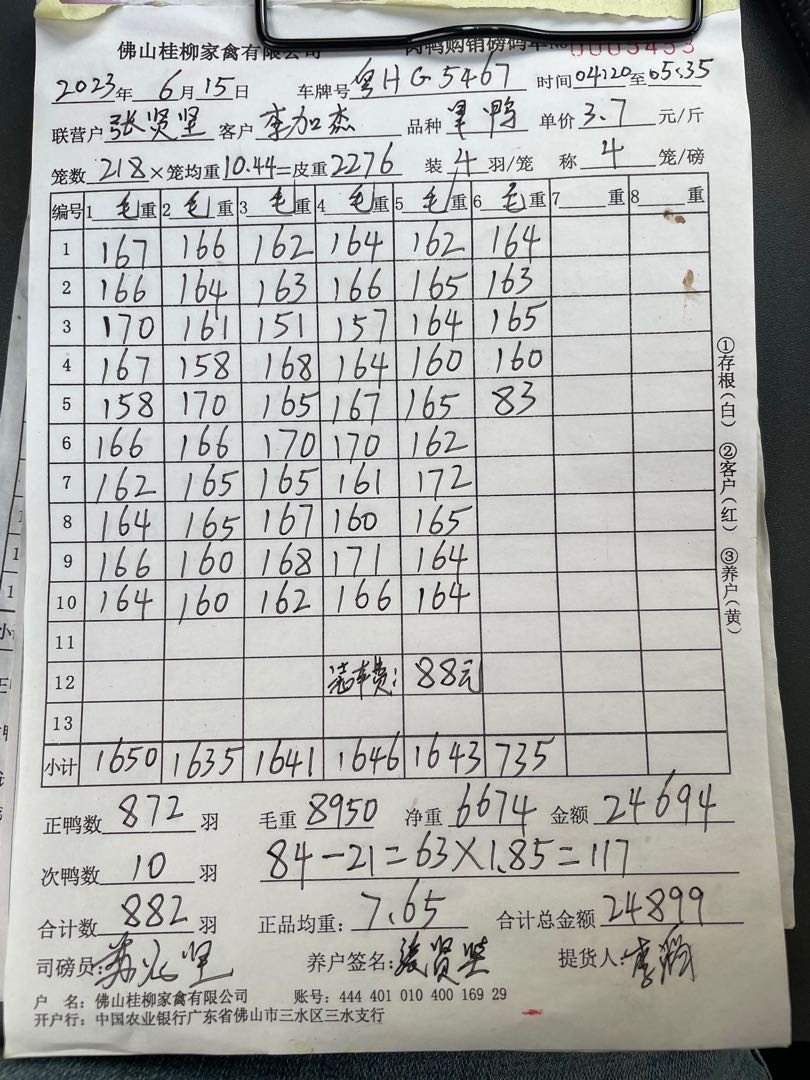 佛山桂柳家禽有限公司 肉鸭购销磅码单 No 0003453
2023年 6月 15日 车牌号 粤HG5467 时间 04:20至05:35
联营户 张贤坚 客户 李加杰 品种 单价 3.7 元/斤
笼数 218 ×笼均重 10.44 =皮重 2276 装 4 羽/笼 称 4 笼/磅
编号 1 毛重 2 毛重 3 毛重 4 毛重 5 毛重 6 毛重 7 重 8 重
1 167 166 162 164 162 164
2 166 164 163 166 165 163
3 170 161 151 157 164 165
4 167 158 168 164 160 160
5 158 170 165 167 165 83
6 166 166 170 170 162
7 162 165 165 161 172
8 164 165 167 160 165
9 166 160 168 171 164
10 164 160 162 166 164
11
12 装车费: 88元
13
小计 1650 1635 1641 1646 1643 735
正鸭数 872 羽 毛重 8950 净重 6674 金额 24694
次鸭数 10 羽 84-21=63×1.85=117
合计数 882 羽 正品均重: 7.65 合计总金额 24899
司磅员: 养户签名: 张贤坚 提货人:
户 名: 佛山桂柳家禽有限公司 账号: 444 401 010 400 169 29
开户行: 中国农业银行广东省佛山市三水区三水支行
①存根(白) ②客户(红) ③养户(黄)